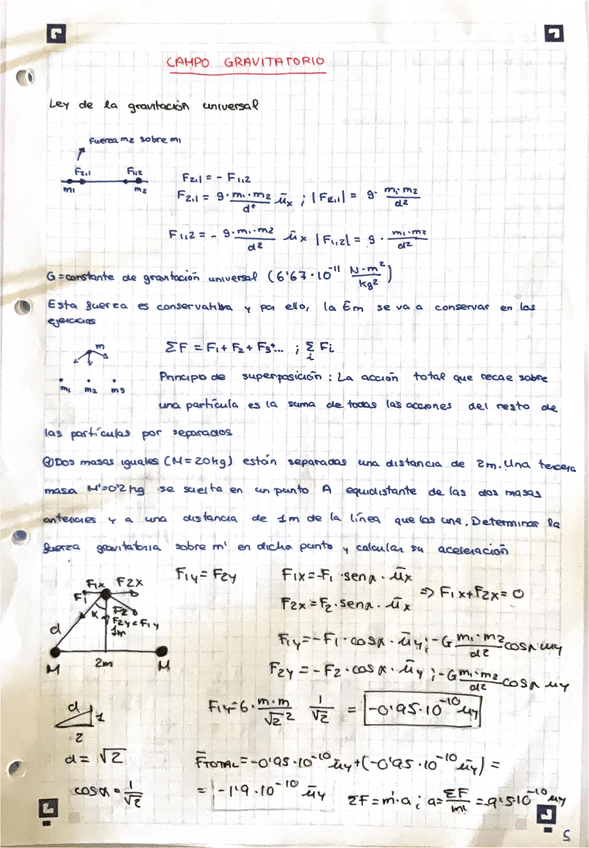 CAMPO GRAVITATORIO
Ley de la gravitación universal
Fuerza m2 sobre m1
F2,1 F1,2
m1 m2
F2,1 = - F1,2
F2,1 = g · m1·m2/d² ūx ; |F2,1| = g · m1·m2/d²
F1,2 = - g·m1·m2/d² ūx |F1,2| = g · m1·m2/d²
G = constante de gravitación universal (6'67·10⁻¹¹ N·m²/kg²)
Esta fuerza es conservativa y por ello, la Em se va a conservar en los
ejercicios
m
m1 m2 m3
ΣF = F1 + F2 + F3+... ; Σi Fi
Principo de superposición : La acción total que recae sobre
una partícula es la suma de todas las acciones del resto de
las partículas por separados
Dos masas iguales (M=20kg) están separadas una distancia de 2m. Una tercera
masa M'=0'2kg se suelta en un punto A equidistante de las dos masas
anteriores y a una distancia de 1m de la línea que las une. Determinar la
fuerza gravitatoria sobre m' en dicho punto y calcular su aceleración
F1x F2x
F1 F2
α F2y=F1y
1m
d
M 2m M
F1y = F2y
F1x = -F1 · senα · ūx
F2x = F2 · senα · ūx
=> F1x+F2x = 0
F1y = -F1 · cosα · ūy ; -G m1·m2/d² cosα uy
F2y = -F2 · cosα · ūy ; -G m1·m2/d² cosα uy
F1y = G · m·m/√2² 1/√2 = -0'95·10⁻¹⁰ ūy
d 1
2
d = √2
cosα = 1/√2
F̄TOTAL = -0'95·10⁻¹⁰ ūy + (-0'95·10⁻¹⁰ ūy) =
= -1'9·10⁻¹⁰ ūy
ΣF = m'·a ; a = ΣF/m' = -9'5·10⁻¹⁰ uy
5